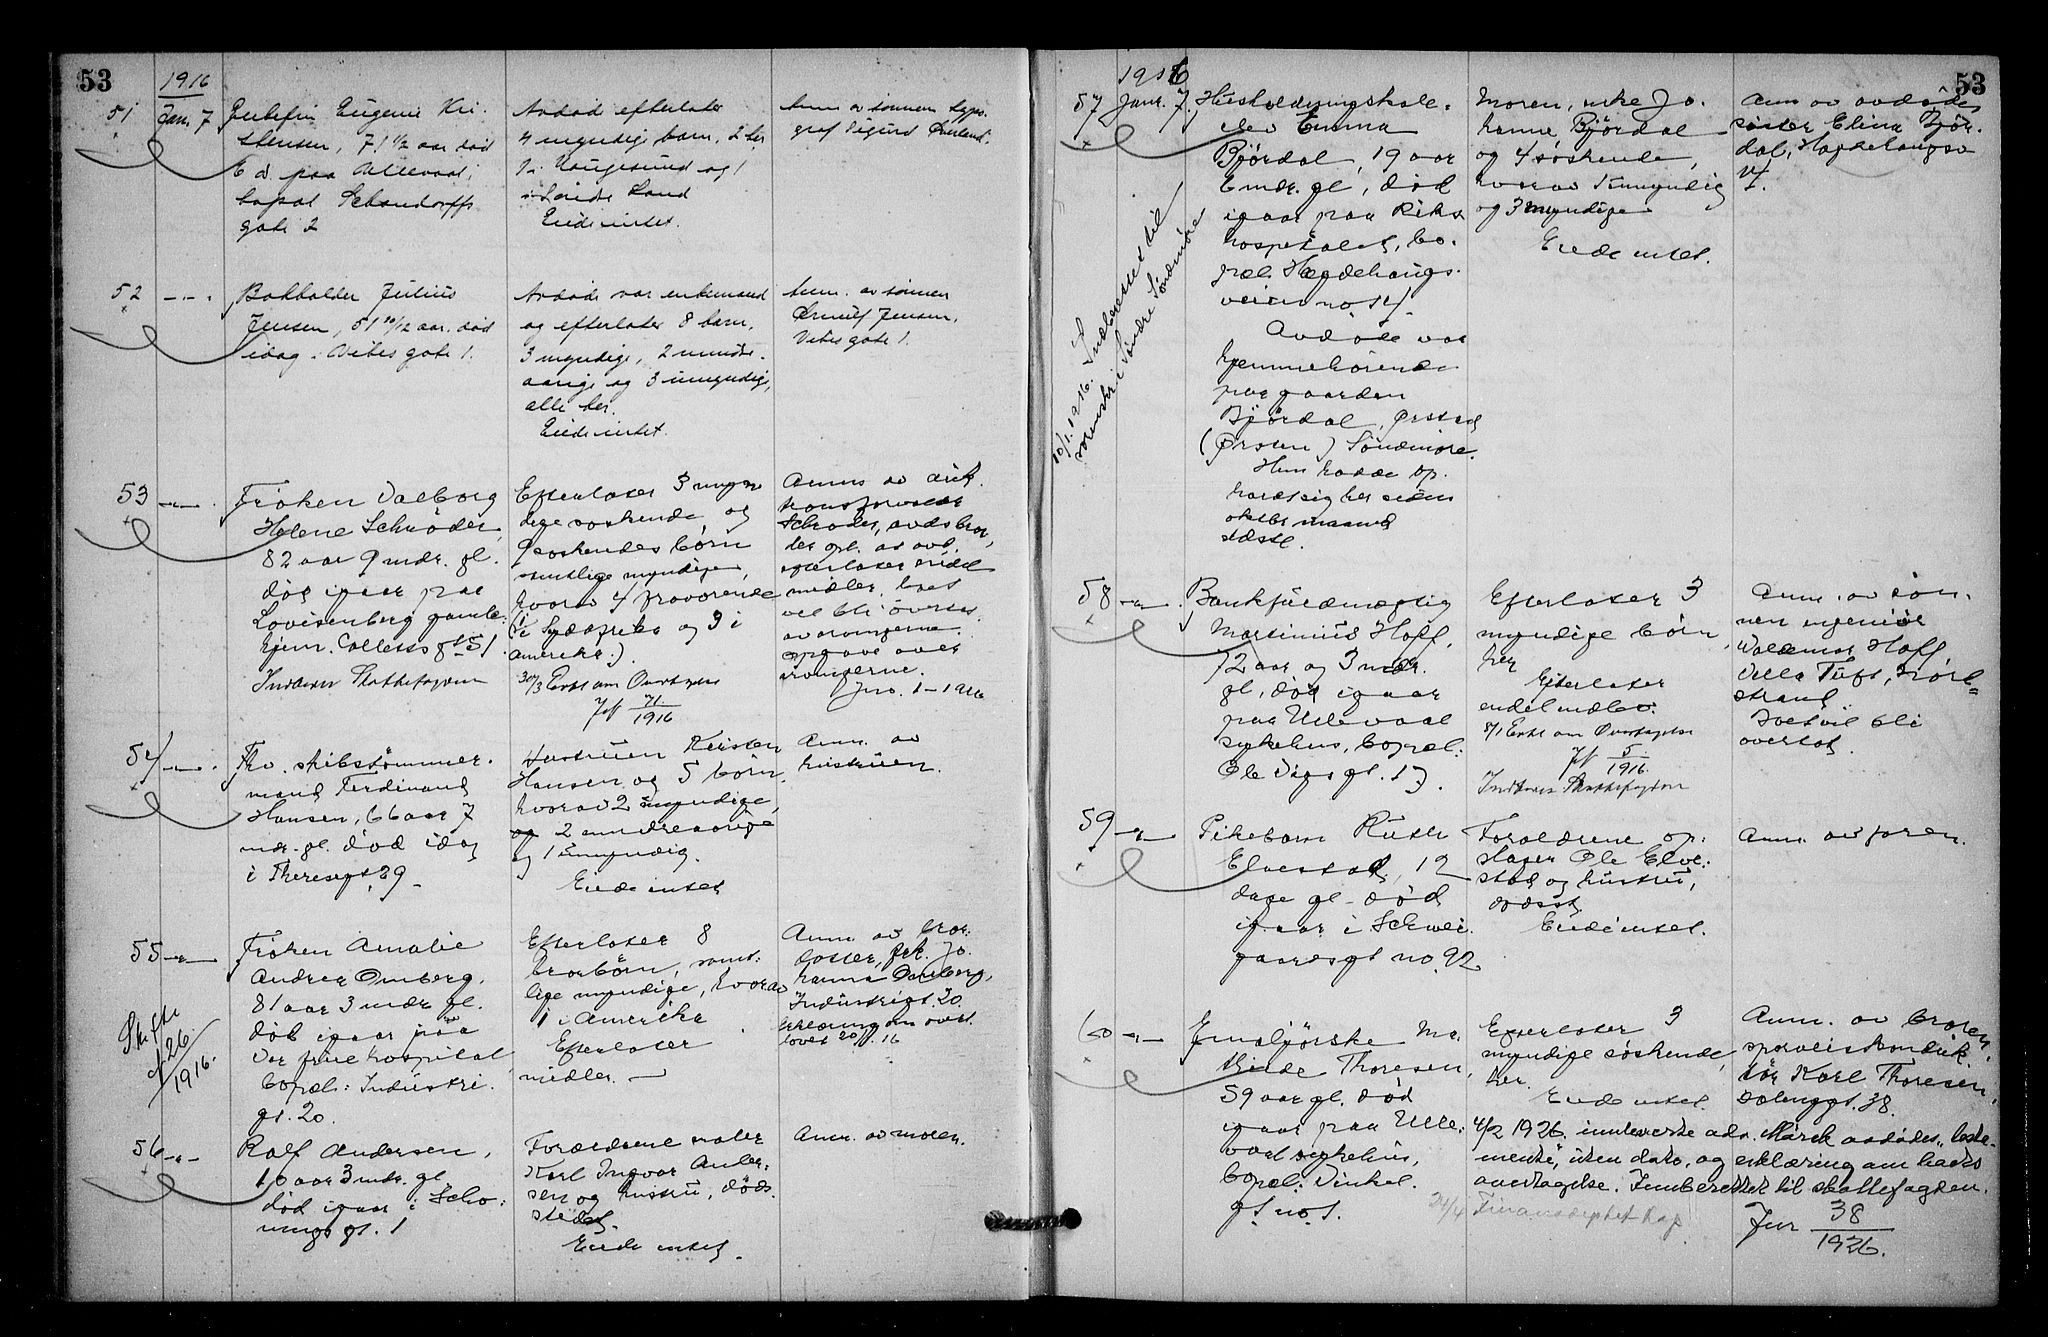 53
1916
51
Jan. 7
Eugenie Kri-
stensen, 71 1/2 aar død
paa Ullevaal,
bopæl Schandorffs
gate 2
Avdøde efterlater
4 myndige barn, 2 her
1 i Haugesund og 1
i Søndre Land
Eiide intet.
Anm. av sønnen typo-
graf Sigurd
52
Bokholder Julius
Jensen, 51 10/12 aar død
idag. Vibes gate 1.
Avdøde var enkemand
og efterlater 8 barn,
3 myndige, 2 mindre-
aarige og 3 umyndige,
alle her.
Eiide intet.
Anm. av sønnen
Jensen,
Vibes gate 1.
53
Frøken Valborg
Helene Schrøder,
82 aar 9 mdr. gl.
død igaar paa
Lovisenberg gamle-
hjem. Collettsgt 51
Indberr. Skattefogden
Efterlater 3 myn-
dige søskende og
9 søskendes børn
samtlige myndige,
hvorav 4 fraværende
(1 i Sydafrika og 3 i
Amerika).
Erkl. om Overtagelse
Jnf 71
1916
Anm. av auk-
tionsforvalter
Schrøder, avdødes bror,
der opl. at avd.
efterlater endel
midler, boet
vil bli overtat
av arvingerne.
Opgave over
arvingerne.
Jno. 1 - 1916
54
Fhv. skibstømmer-
mand Ferdinand
Hansen, 66 aar 7
mdr. gl. død idag
i Theresesgt. 29.
Hustruen Kirsten
Hansen og 5 børn,
hvorav 2 myndige,
og 2 mindreaarige
og 1 umyndig.
Eiide intet
Anm. av
hustruen.
55
Skifte
26
1916.
Frøken Amalie
Andrea Omberg,
81 aar 3 mdr. gl.
død igaar paa
Vor frue hospital,
bopæl: Industri-
gt. 20.
Efterlater 8
brorbørn, samt-
lige myndige, hvorav
1 i Amerika.
Efterlater
midler.
Anm. av bror-
datter, frk. Jo-
hanna Omberg,
Industrigt. 20.
Erklæring om overt.
lovet 20/1. 16
56
Rolf Andersen,
10 aar 3 mdr. gl.
død igaar i Scho-
nings gt. 1
Forældrene maler
Karl Ingvar Ander-
sen og hustru, døds-
stedet.
Eiide intet.
Anm. av moren.
53
1916
57
Janr. 7.
10/1. 1916. Indberettet til
sorenskr. i Søndre Søndmøre
Husholdningsskole-
elev Emma
Bjørdal, 19 aar
6 mdr. gl, død
igaar paa Riks-
hospitalet, bo-
pæl. Hegdehaugs-
veien no 14.
Avdøde var
hjemmehørende
paa gaarden
Bjørdal, Ørsted
(Ørsten) Søndmøre.
Hun hadde op-
holdt sig her siden
oktbr maaned
sidste.
Moren, enke Jo-
hanne Bjørdal
og 4 søskende,
hvorav 1 umyndig
og 3 myndige
Eiide intet.
Anm av avdødes
søster Elina Bjør-
dal, Hegdehaugsv
14.
58
Bankfuldmægtig
Martinius Hoff,
72 aar og 3 mdr.
gl, død igaar
paa Ullevaal
sykehus, bopæl:
Ole Vigs gt. 17.
Efterlater 3
myndige børn,
her
Efterlater
endel midler.
8/1 Erkl om Overtagelse
Jnf 5
1916.
Indberr. Skattefogden
Anm. av søn-
nen ingeniør
Waldemar Hoff
Villa Tuft,
strand.
Boet vil bli
overtat.
59
Pikebarn Ruth
Elvestad, 12
dage gl. død
igaar i Schwei-
gaardsgt no. 92.
Forældrene op-
slager Ole Elve-
stad og hustru,
dødsst.
Eiide intet.
Anm. av faren.
60
Emaljørske Ma-
thilde Thoresen,
59 aar gl. død
igaar paa Ulle-
vaal sykehus,
bopæl: Vinkel-
gt. no. 1.
Efterlater 3
myndige søskende,
her.
Eiide intet.
Anm. av broren,
sporveiskonduk-
tør Karl Thoresen,
Dælenggt. 38.
4/2 1926. innleverte adv. Marck avdødes "teste-
mente", uten dato, og erklæring om boets
overtagelse. Innberettet til skattefogden.
24/4 Finansdeptet
Jnr 38
1926.